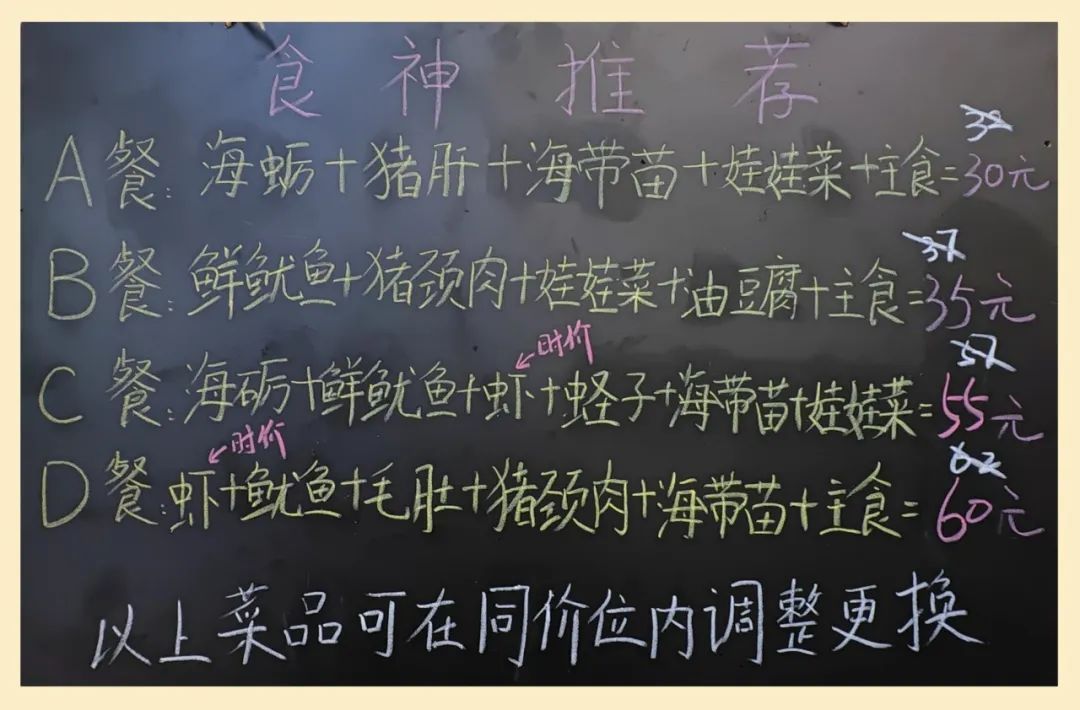 食神推荐
32
A餐：海蛎+猪肝+海带苗+娃娃菜+主食=30元
37
B餐：鲜鱿鱼+猪颈肉+娃娃菜+油豆腐+主食=35元
时价
57
C餐：海砺+鲜鱿鱼+虾+蛏子+海带苗+娃娃菜=55元
时价
62
D餐：虾+鱿鱼+毛肚+猪颈肉+海带苗+主食=60元
以上菜品可在同价位内调整更换